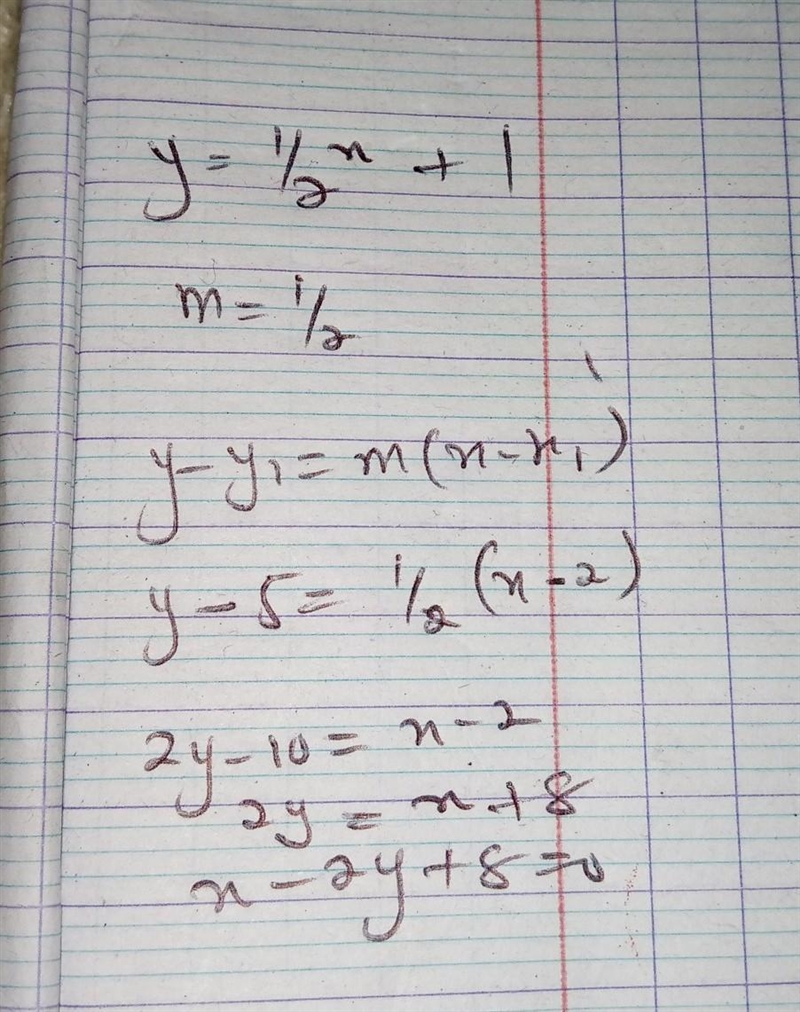 y = 1/2 x + 1
m = 1/2
y - y1 = m(x - x1)
y - 5 = 1/2 (x - 2)
2y - 10 = x - 2
2y = x + 8
x - 2y + 8 = 0